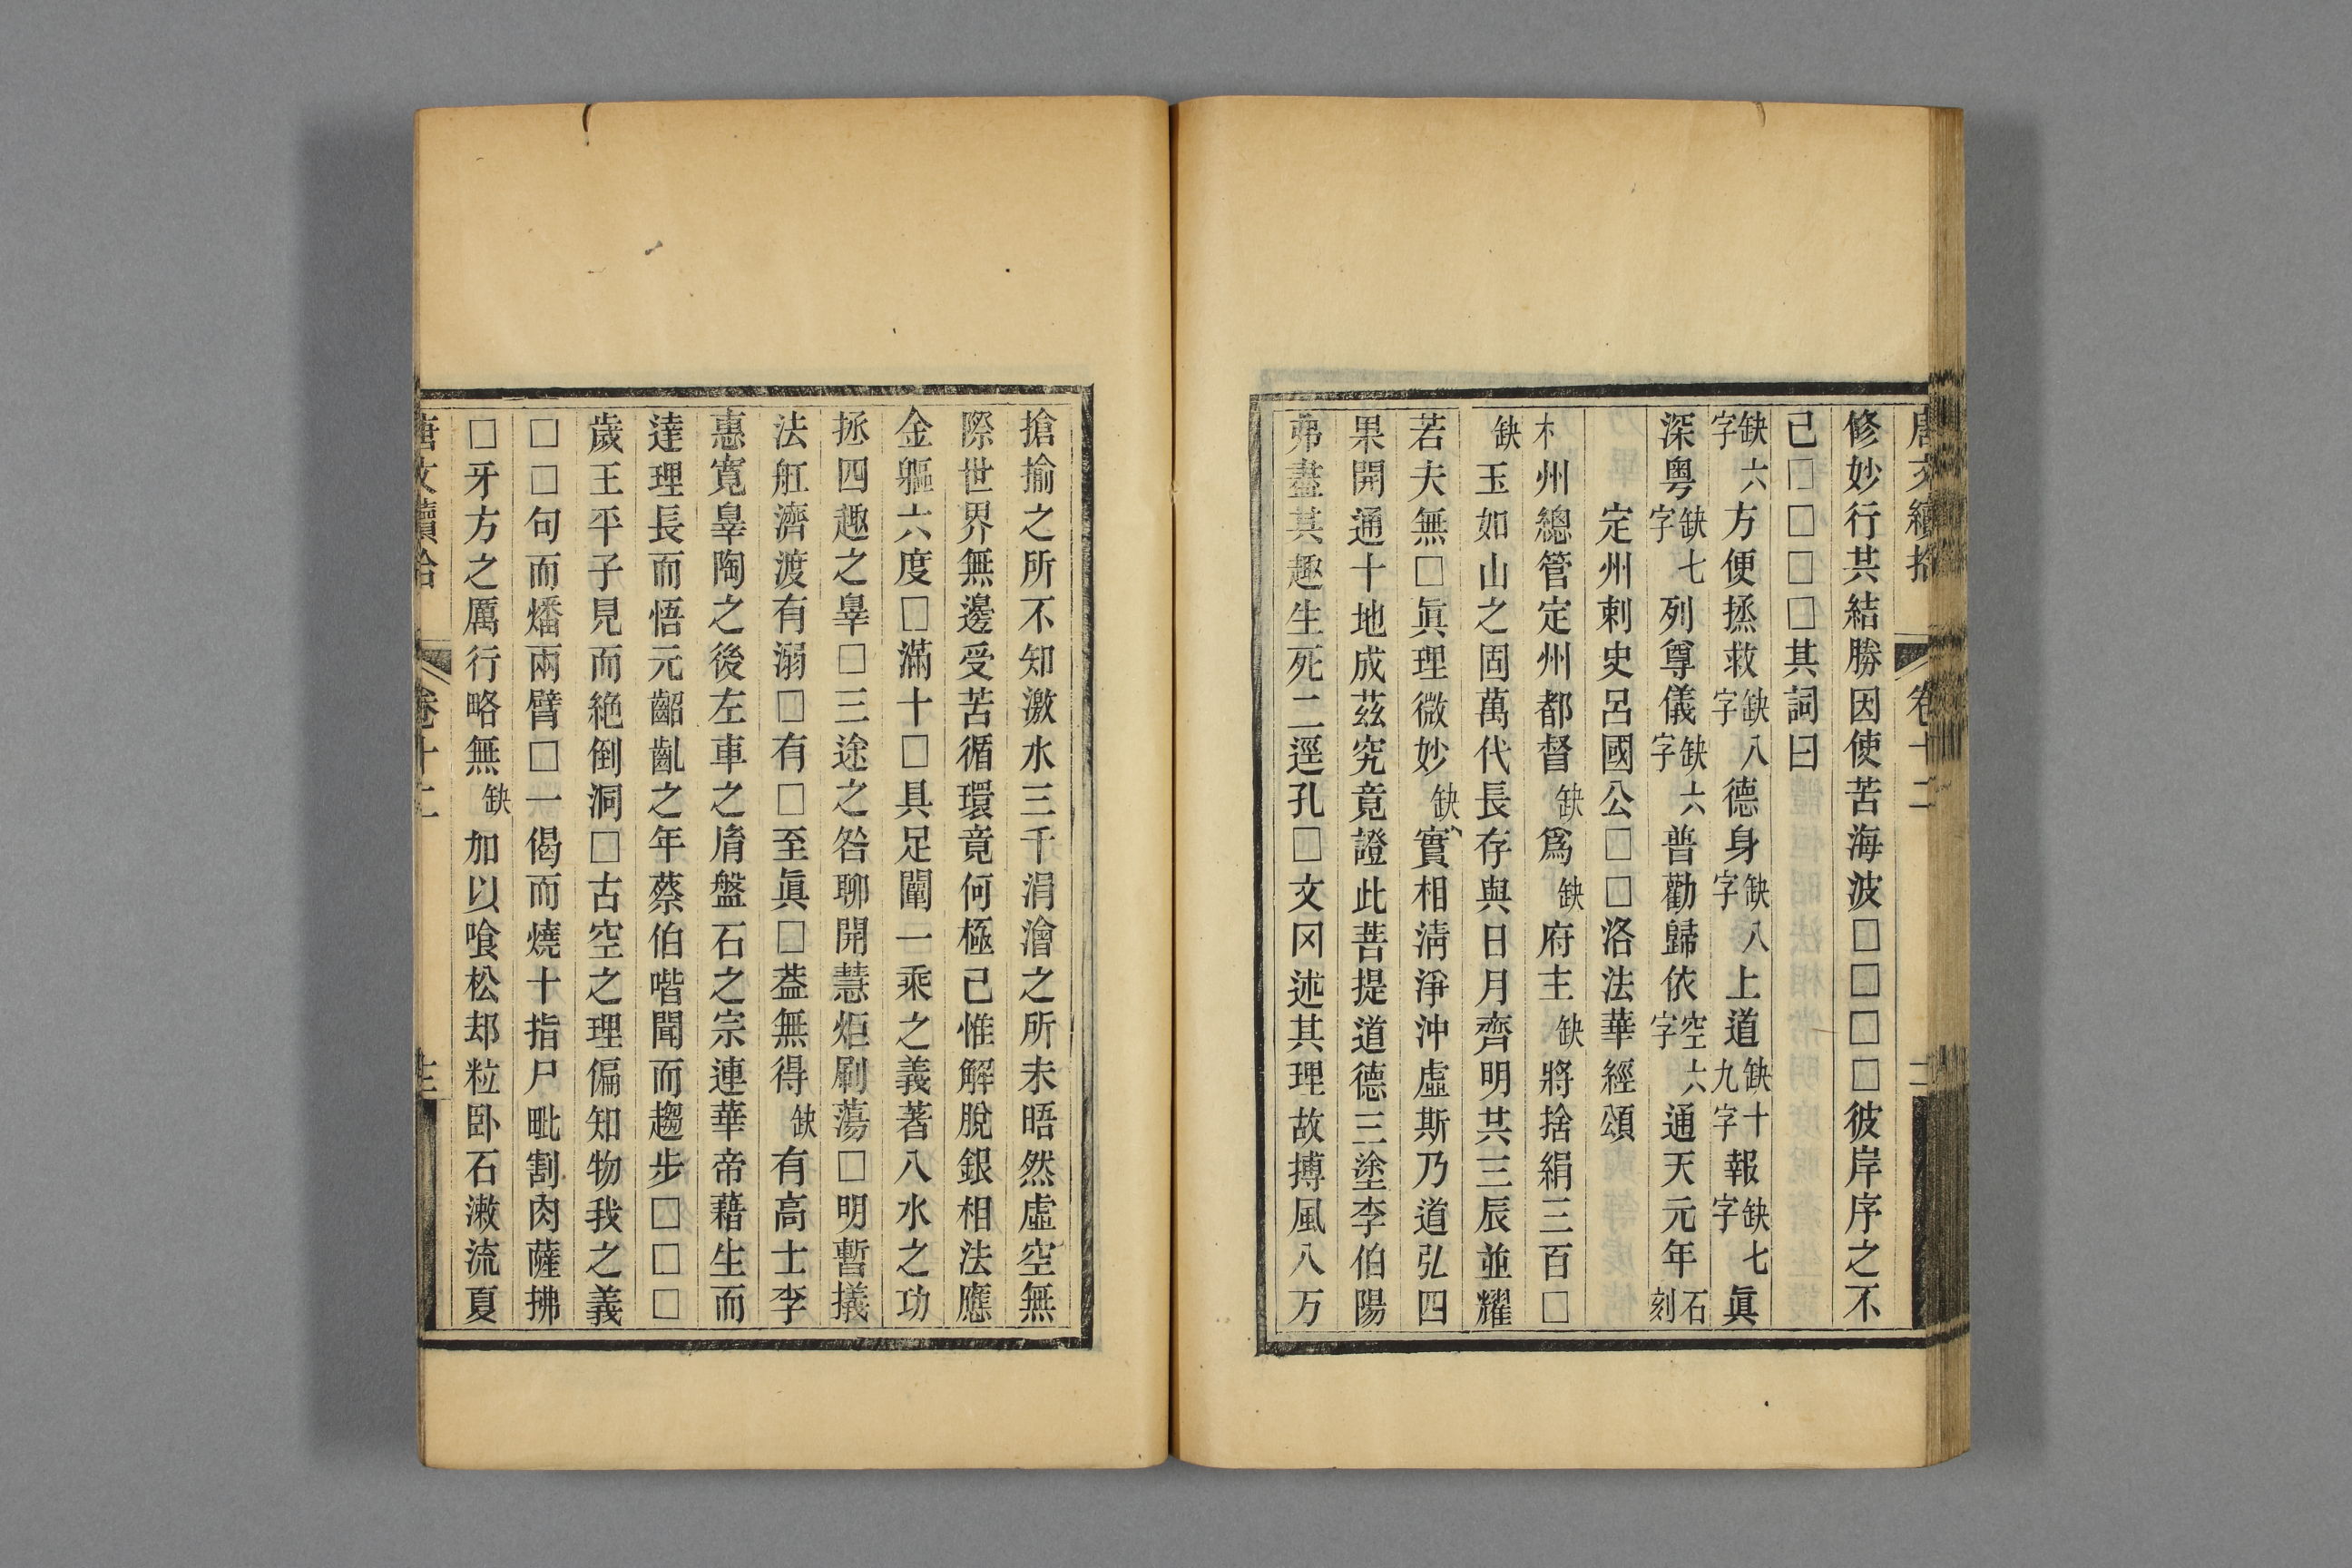 唐文續拾 卷十二 二
修妙行其結勝因使苦海波□□□□彼岸序之不
已□□□□其詞曰
缺六字方便拯救缺八字德身缺八字上道缺十九字報缺七字眞
深粵缺七字列尊儀缺六字普勸歸依空六字通天元年石刻
定州刺史呂國公□□洛法華經頌
州總管定州都督缺爲缺府主缺將捨絹三百□
缺玉如山之固萬代長存與日月齊明共三辰並耀
若夫無□眞理微妙缺實相淸淨沖虛斯乃道弘四
果開通十地成茲究竟證此菩提道德三塗李伯陽
弗盡其趣生死二逕孔□文冈述其理故搏風八万
搶揄之所不知激水三千涓澮之所未晤然虛空無
際世界無邊受苦循環竟何極已惟解脫銀相法應
金軀六度□滿十□具足闡一乘之義著八水之功
拯四趣之辠□三途之咎聊開慧炬刷蕩□明暫撦
法舡濟渡有溺□有□至眞□葢無得缺有高士李
惠寬辠陶之後左車之胤盤石之宗連華帝藉生而
達理長而悟元齠齓之年蔡伯喈聞而趨步□□□
歲王平子見而絶倒洞□古空之理偏知物我之義
□□句而燔兩臂□一偈而燒十指尸毗割肉薩拂
□牙方之厲行略無缺加以喰松却粒卧石漱流夏
唐文續拾 卷十二